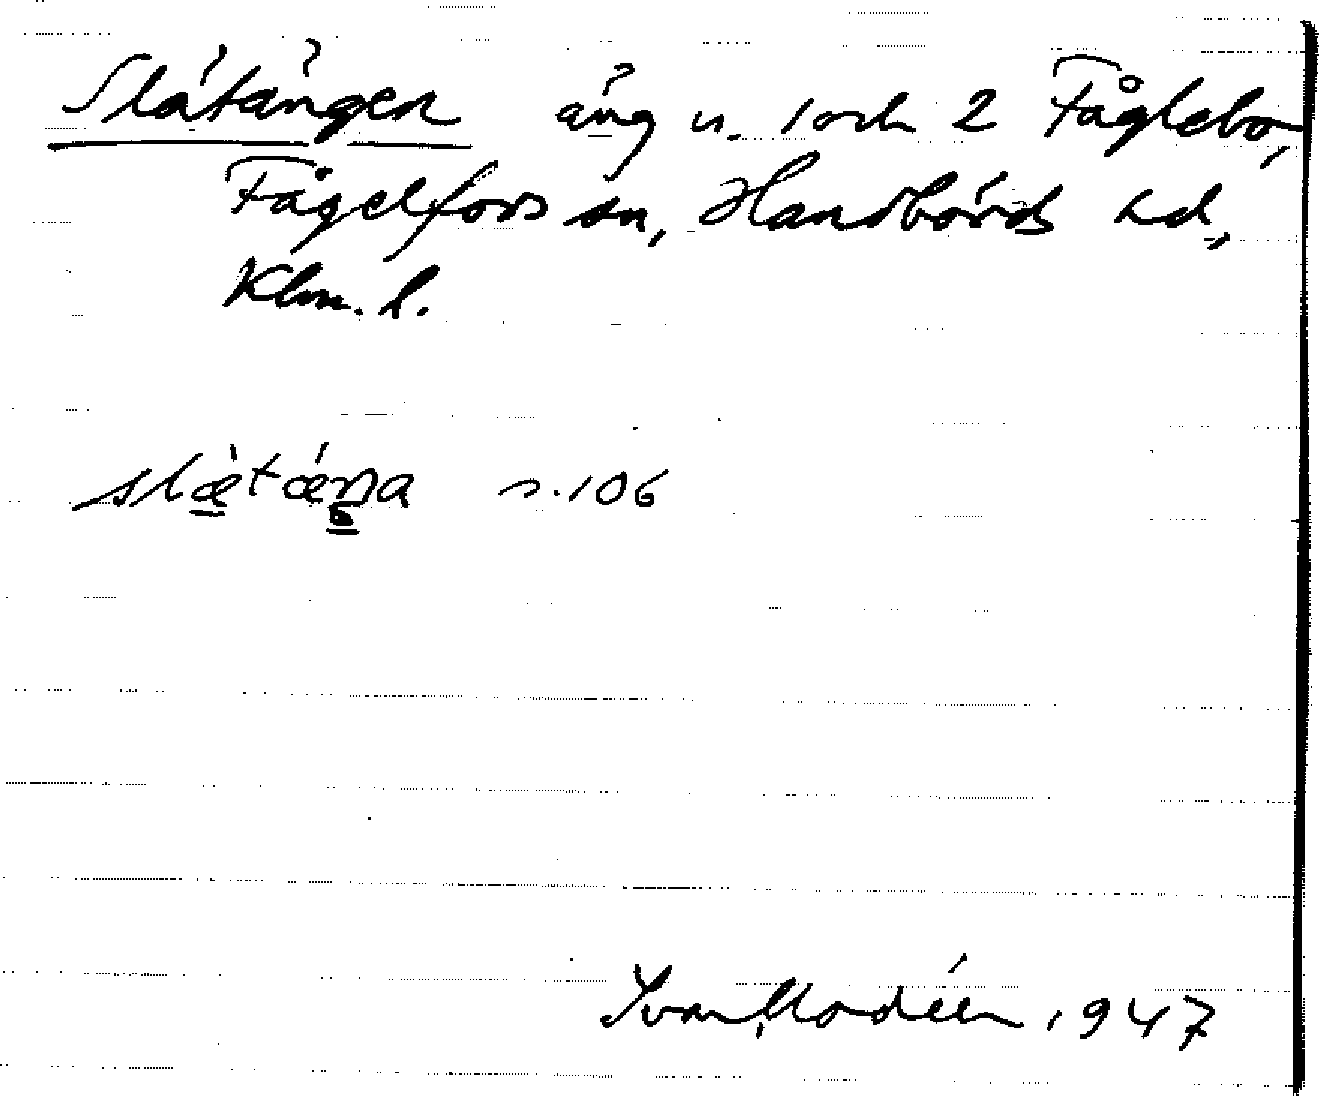 Slätängen äng u. 1 och 2 Fåglebo,
Fågelfors sn, Handbörds hd,
Klm. l.
slæ̀tǽŋa s. 106
Ivar Modéer 1947